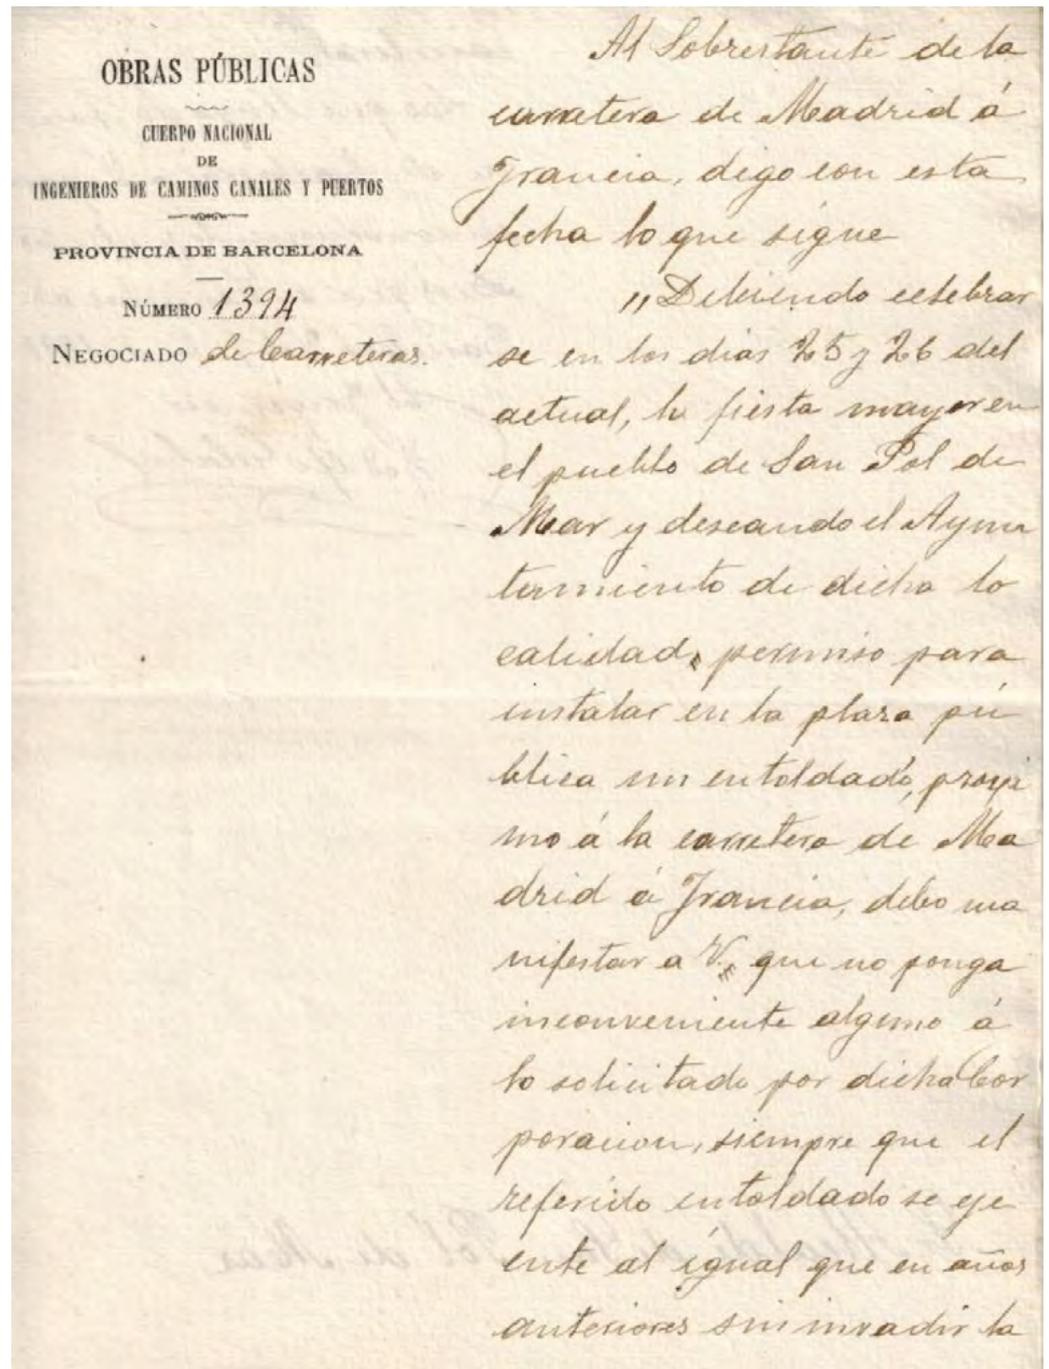 OBRAS PÚBLICAS
CUERPO NACIONAL
DE
INGENIEROS DE CAMINOS CANALES Y PUERTOS
PROVINCIA DE BARCELONA
NÚMERO 1394
NEGOCIADO de Carreteras.
Al Sobrestante de la
carretera de Madrid á
Francia, digo con esta
fecha lo que sigue
"Debiendo celebrar
se en los dias 25 y 26 del
actual, la fiesta mayor en
el pueblo de San Pol de
Mar y deseando el Ayun
tamiento de dicha lo
calidad, permiso para
instalar en la plaza pú
blica un entoldado, proxi
mo á la carretera de Ma
drid á Francia, debo ma
nifestar a V. que no ponga
inconveniente alguno á
lo solicitado por dicha Cor
poracion, siempre que el
referido entoldado se eje
cute al igual que en años
anteriores sin invadir la